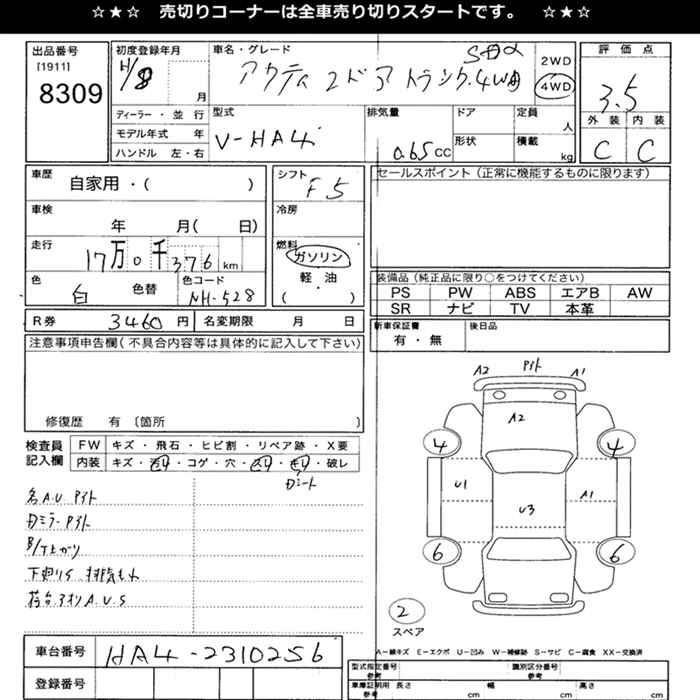 ☆★☆ 売切りコーナーは全車売り切りスタートです。 ☆★☆
出品番号
[1911]
8309
初度登録年月
H/8
月
車名・グレード
アクティ 2ドア トラック 4WD SDX
2WD
4WD
評価点
3.5
外装 内装
C C
ディーラー・並行
モデル年式 年
ハンドル 左・右
型式
V-HA4
排気量
0.65 CC
ドア
形状
定員
人
積載
kg
車歴
自家用・( )
車検
年 月( 日)
走行
17万0千376 km
色
白
色替
色コード
NH-528
シフト
F5
冷房
燃料
ガソリン
軽・油
( )
セールスポイント(正常に機能するものに限ります)
装備品(純正品に限り○をつけてください)
PS PW ABS エアB AW
SR ナビ TV 本革
R券 3460円 名変期限 月 日
新車保証書
有・無
後日品
注意事項申告欄(不具合内容等は具体的に記入して下さい)
修復歴 有 〔箇所 〕
検査員
記入欄
FW キズ・飛石・ヒビ割・リペア跡・X要
内装 キズ・汚れ・コゲ・穴・スリ・キレ・破レ
シート
各A.U サイト
Dミラーサイト
下廻りS、排気もれ
荷台アオリA.U.S
A2 サイト A1
A2
4 4
U1 U3 A1
6 6
2
スペア
A−線キズ E−エクボ U−凹み W−補修跡 S−サビ C−腐食 XX−交換済
車台番号 HA4-2310256
登録番号
型式指定番号
参考
識別区分番号
参考
車庫証明用
参考
長さ cm 幅 cm 高さ cm